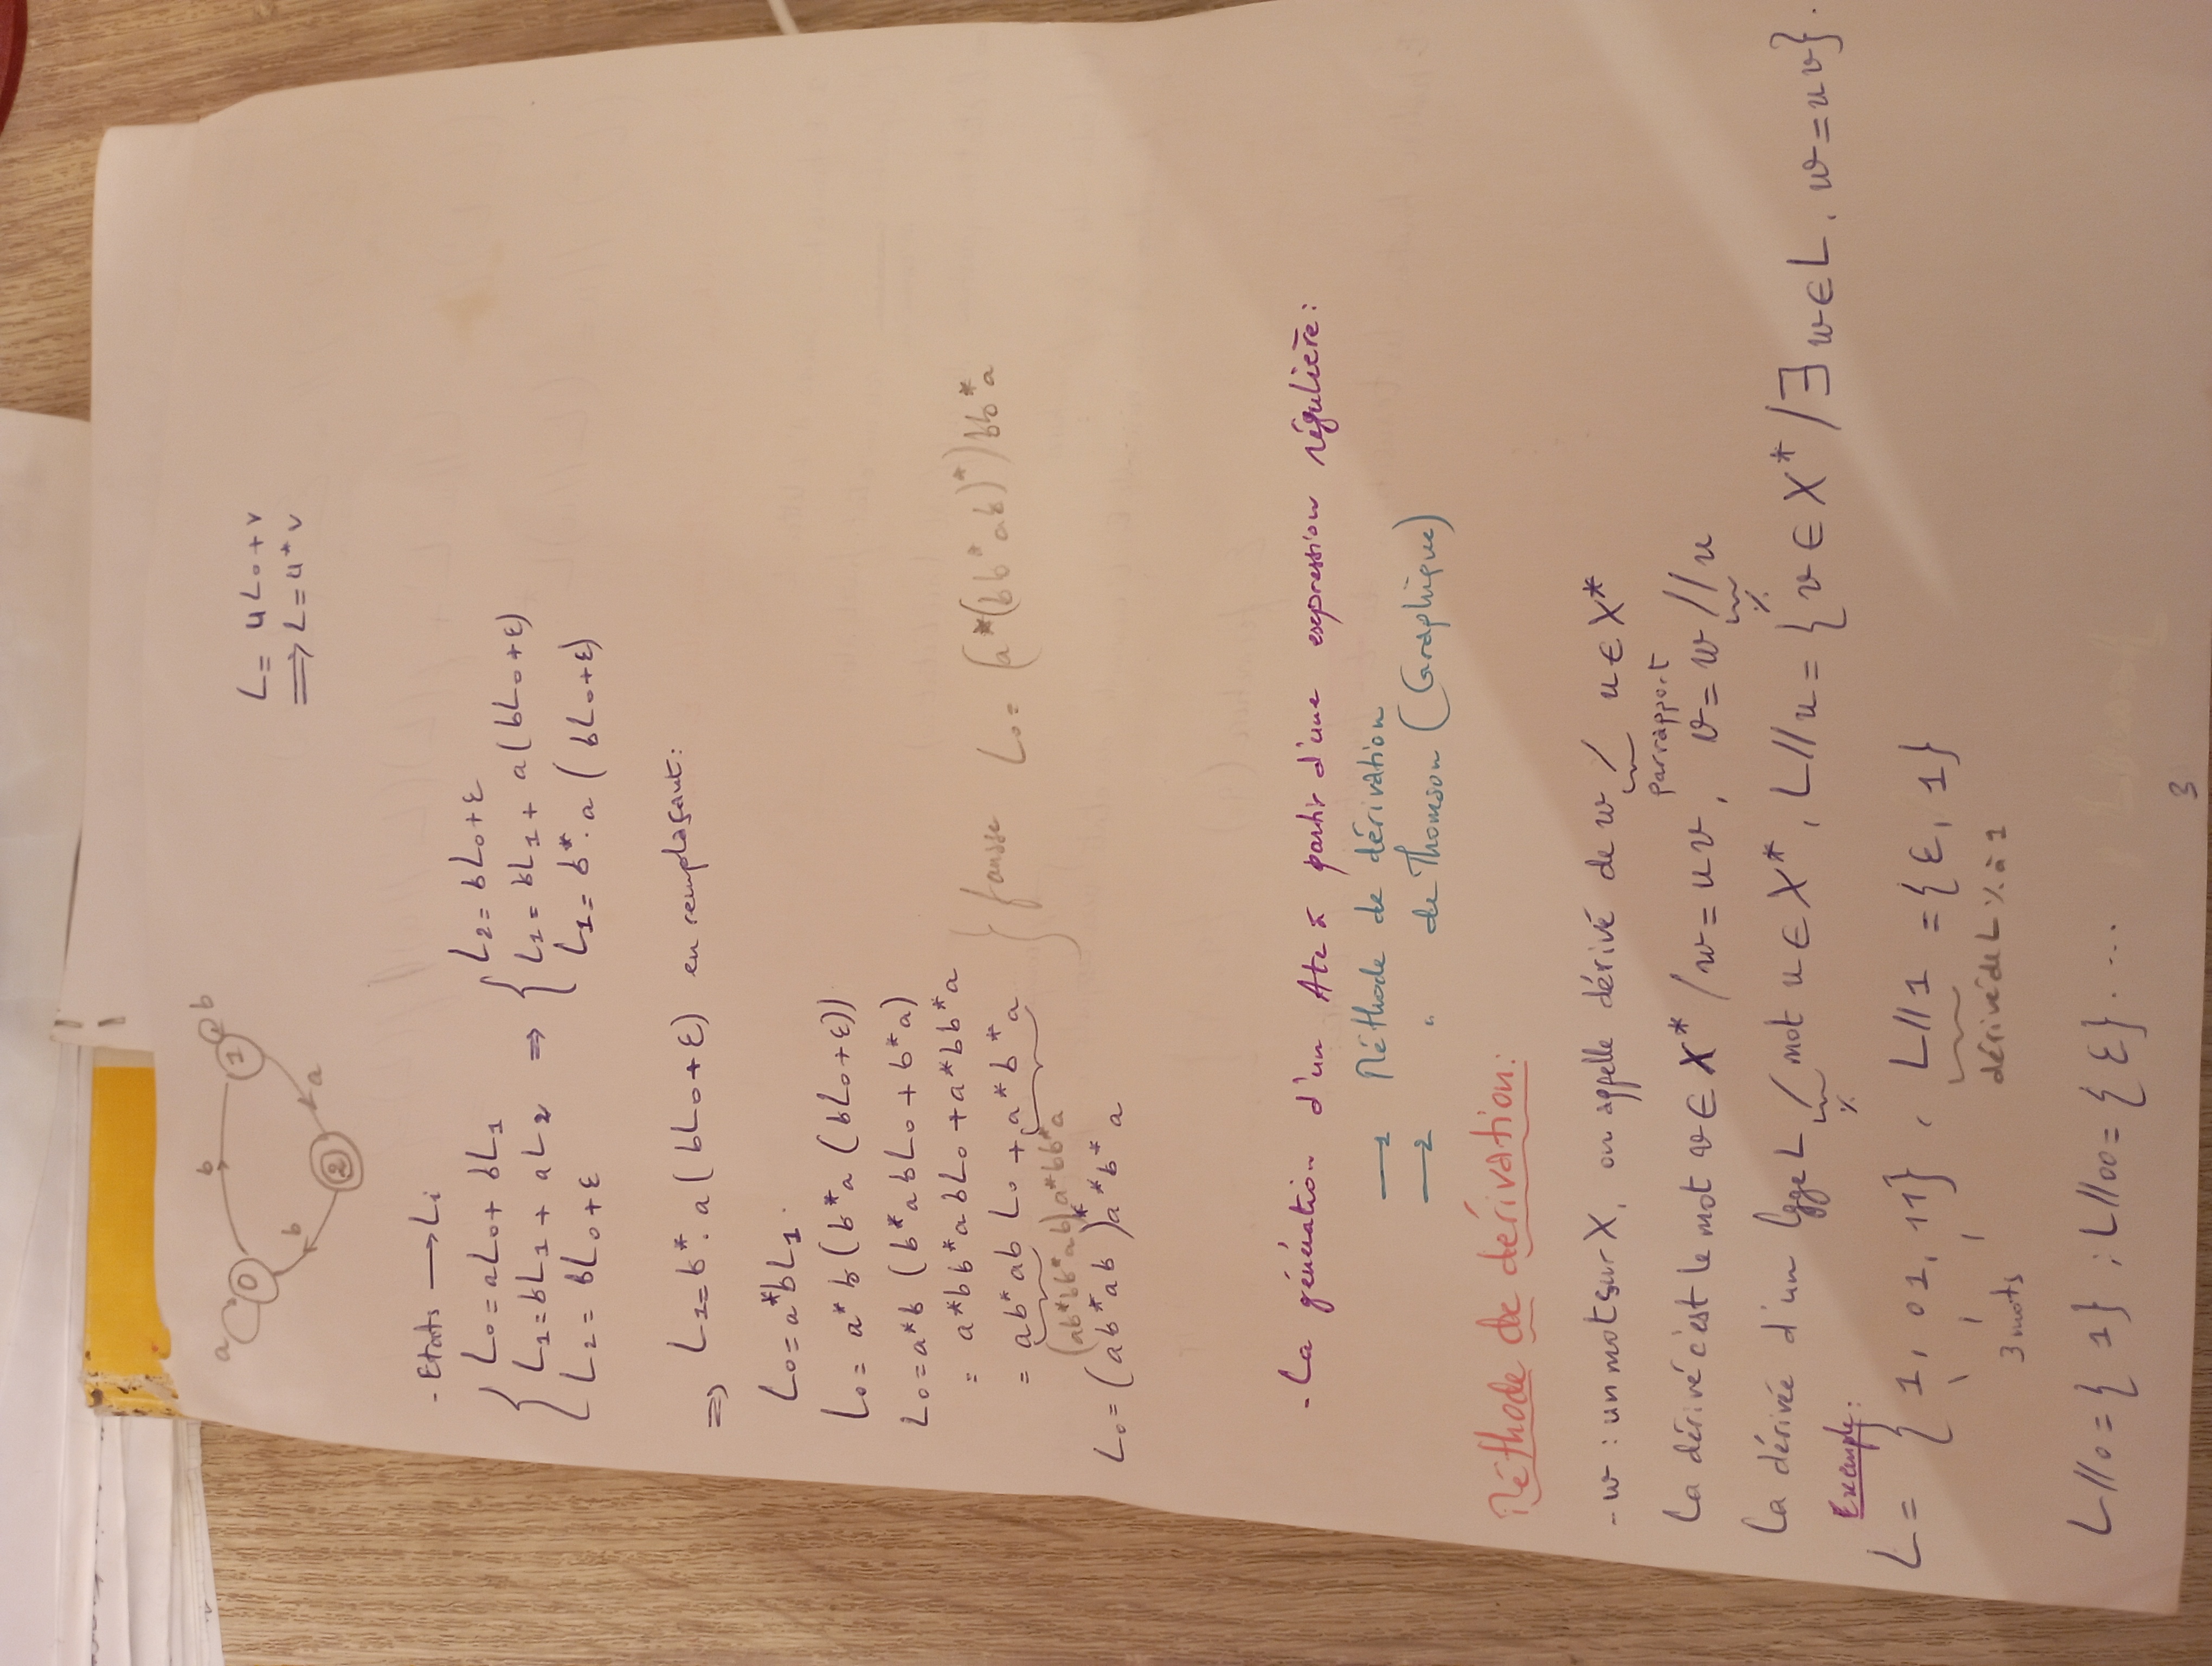 a b 1 b
0
b
2 a
L = uL₀ + v
⟹ L = u* v
- Etats → Li
L₀ = aL₀ + bL₁
L₁ = bL₁ + aL₂ ⟹
L₂ = bL₀ + ε
L₂ = bL₀ + ε
L₁ = bL₁ + a(bL₀ + ε)
L₁ = b*. a (bL₀ + ε)
⟹ L₁ = b*. a (bL₀ + ε) en remplaçant:
L₀ = a*bL₁.
L₀ = a* b (b*a (bL₀ + ε))
L₀ = a*b (b*abL₀ + b*a)
= a*bb*abL₀ + a*bb*a
= ab*ab L₀ + a*b*a
(ab*bb*ab) a*bb*a
L₀ = (ab*ab)* a*b* a
} fausse L₀ = (a*(bb*ab)*) bb*a
- La génération d'un Ate à partir d'une expression régulière:
→1 Méthode de dérivation
→2 " de Thomson (Graphique)
Méthode de dérivation:
- w : un mot sur X, on appelle dérivé de w / u ∈ X*
par rapport
La dérivé c'est le mot v ∈ X* / w = uv, v = w // u
%
La dérivée d'un lgge L / mot u ∈ X*, L//u = {v ∈ X* / ∃ w ∈ L, w = uv}.
%
Exemple:
L = {1, 01, 11}, L//1 = {ε, 1}
3 mots dérivé de L % à 1
L//0 = {1} ; L//00 = {ε}. ...
3